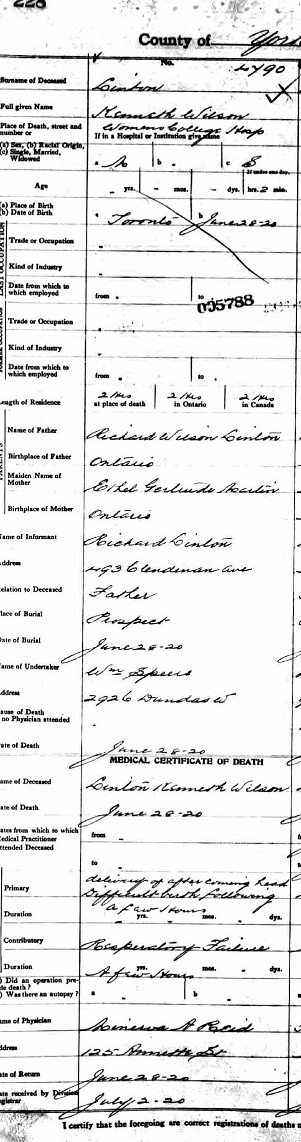 228
County of York
No.
4790
Surname of Deceased Linton
Full given Name Kenneth Wilson
Place of Death, street and number or Womens College Hosp
If in a Hospital or Institution give name
(a) Sex, (b) Racial Origin, (c) Single, Married, Widowed
a M b . c S
If under one day,
Age - yrs. - mos. - dys. hrs. 2 min.
(a) Place of Birth
(b) Date of Birth
a Toronto b June 28-20
Trade or Occupation
Kind of Industry
Date from which to which employed from . to .
035788
Trade or Occupation
Kind of Industry
Date from which to which employed from . to .
Length of Residence 2 Hrs at place of death 2 Hrs in Ontario 2 Hrs in Canada
PARENTS
Name of Father Richard Wilson Linton
Birthplace of Father Ontario
Maiden Name of Mother Ethel Gertrude Martin
Birthplace of Mother Ontario
Name of Informant Richard Linton
Address 493 Clendenan Ave
Relation to Deceased Father
Place of Burial Prospect
Date of Burial June 28-20
Name of Undertaker Wm Speers
Address 2926 Dundas W
Cause of Death
no Physician attended
Date of Death June 28-20
MEDICAL CERTIFICATE OF DEATH
Name of Deceased Linton Kenneth Wilson
Date of Death June 28-20
Dates from which to which Medical Practitioner attended Deceased
from -
to -
delivery of after coming head
Primary Difficult birth following
Duration A few Hours yrs. mos. dys.
Contributory Resperatory Failure
Duration A few Hours yrs. mos. dys.
Did an operation precede death?
Was there an autopsy?
a - b -
Name of Physician Minerva A Reid
Address 125 Annette St
Date of Return June 28-20
Date received by Division Registrar July 2-20
I certify that the foregoing are correct registrations of deaths